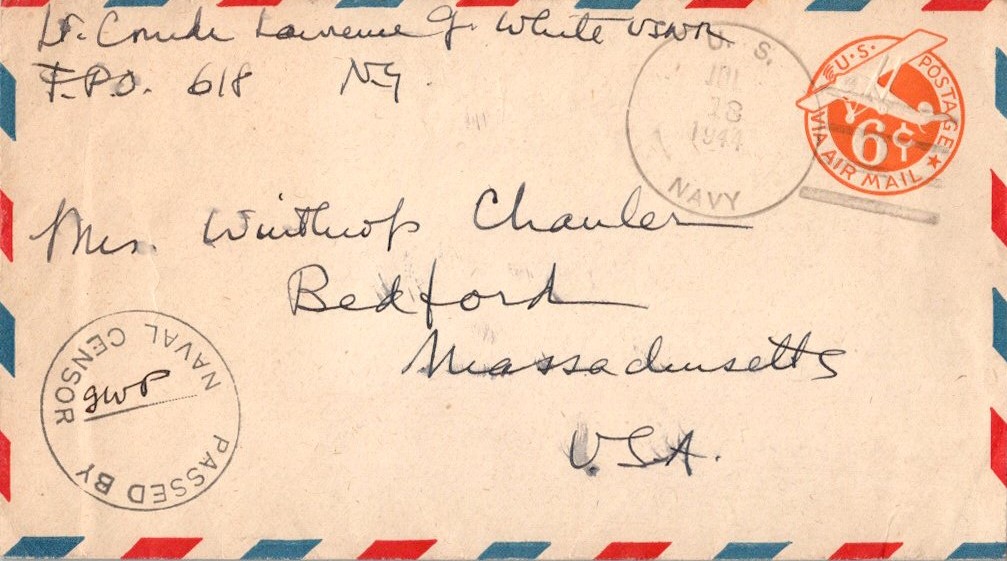 Lt. Comdr Lawrence G. White USNR
F.P.O. 618 N.Y.
U. S.
JUL
18
1944
NAVY
U.S. POSTAGE
6¢
VIA AIR MAIL
Mrs. Winthrop Chanler
Bedford
Massachusetts
U.S.A.
PASSED BY
NAVAL CENSOR
GWP